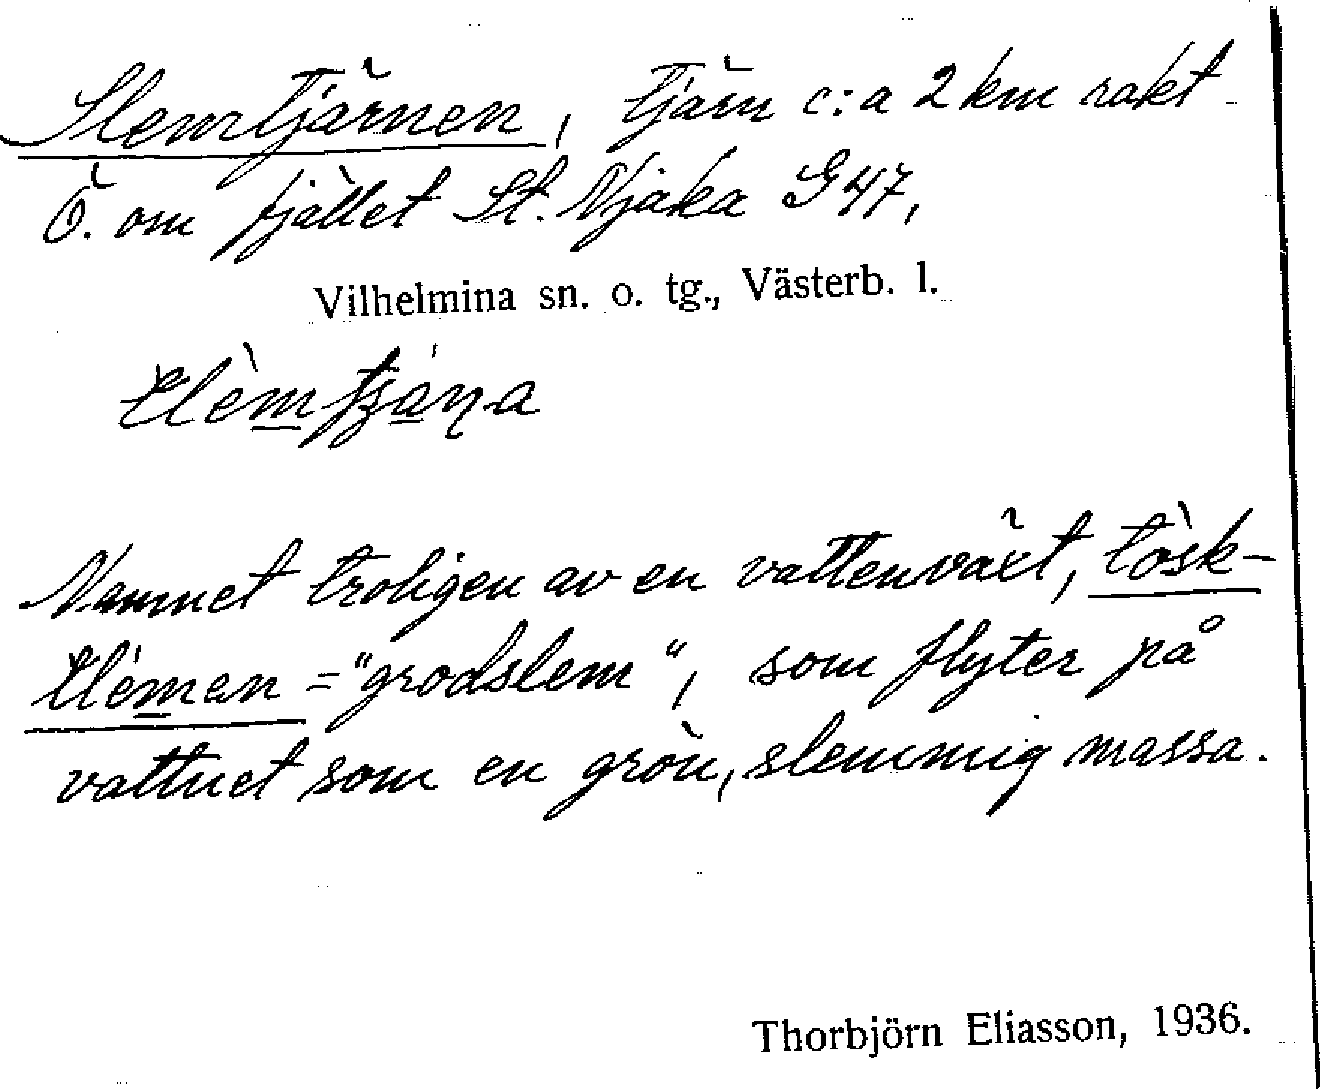 Slemtjärnen, tjärn c:a 2 km rakt
Ö. om fjället St. Njaka G 47,
Vilhelmina sn. o. tg., Västerb. l.
Namnet troligen av en vattenväxt, tòsk-
= "grodslem", som flyter på
vattnet som en grön, slemmig massa.
Thorbjörn Eliasson, 1936.